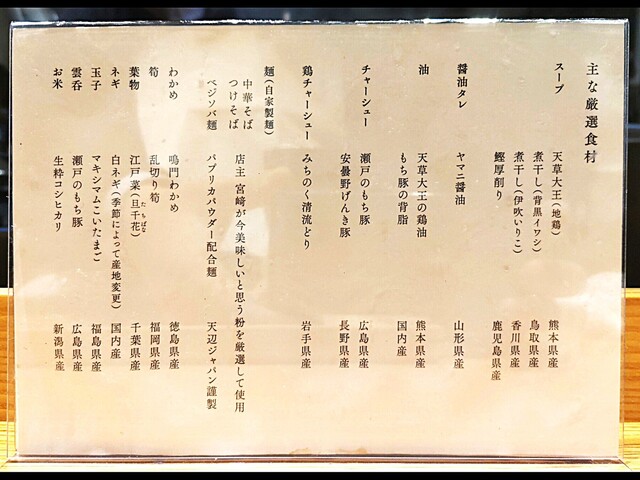 主な厳選食材
スープ 天草大王(地鶏) 熊本県産
煮干し(背黒イワシ) 鳥取県産
煮干し(伊吹いりこ) 香川県産
鰹厚削り 鹿児島県産
醤油タレ ヤマニ醤油 山形県産
油 天草大王の鶏油 熊本県産
もち豚の背脂 国内産
チャーシュー 瀬戸のもち豚 広島県産
安曇野げんき豚 長野県産
鶏チャーシュー みちのく清流どり 岩手県産
麺(自家製麺)
中華そば
つけそば 店主 宮﨑が今美味しいと思う粉を厳選して使用
ベジソバ麺 パプリカパウダー配合麺 天辺ジャパン謹製
わかめ 鳴門わかめ 徳島県産
筍 乱切り筍 福岡県産
葉物 江戸菜(旦千花) 千葉県産
たちばな
ネギ 白ネギ(季節によって産地変更) 国内産
玉子 マキシマムこいたまご 福島県産
雲呑 瀬戸のもち豚 広島県産
お米 生粋コシヒカリ 新潟県産